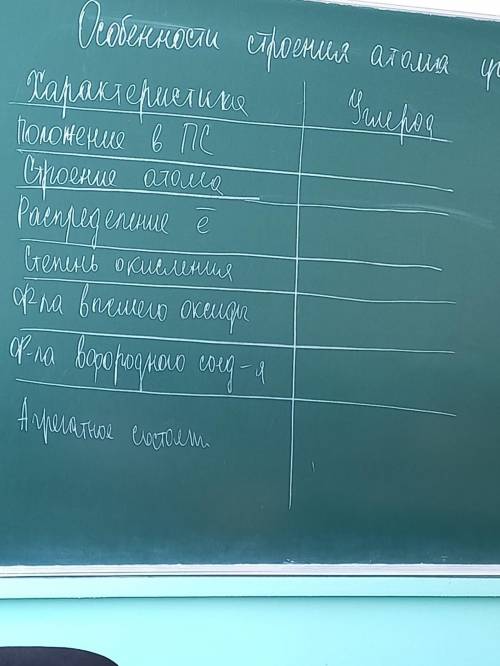 Особенности строения атома
Характеристика Углерод
Положение в ПС
Строение атома
Распределение ē
Степень окисления
Ф-ла высшего оксида
Ф-ла водородного соед-я
Агрегатное состоян.